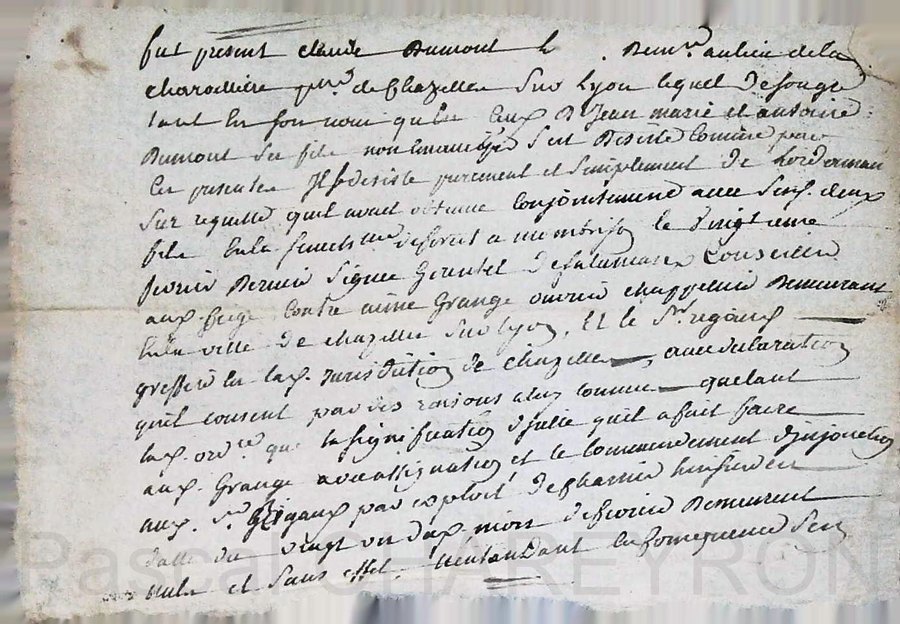 fut present claude Dumont L demr. au lieu de la
charodiere prs. de Chazelles sur Lyon lequel de son gré
tant en son nom qu'en ceux de Jean marie et antoine
Dumont ses fils non Emancipés s'est desisté comme par
ces presentes Il se desiste purement et simplement de Lordonnance
sur requette quil avait obtenue conjointement avec sesd. deux
fils en la senechssée de forest a montbrison le vingt une
fevrier dernier signée Gerentet conseiller
aud. siege contre aimé Grange ouvrier chappelier demeurant
en la ville de chazelles sur lyon, Et le Sr. regaud
greffier en lad. Jurisdiction de chazelles avec declaration
quil consent par des raisons a luy connues que tant
lad. ordce. que la signification d'icelle quil a fait faire
aud. Grange avec assignation et le commandement d'injonction
aud. Sr. Rigaud par exploit de huissier en
datte du vingt un dud. mois de fevrier demeurent
nuls et sans effet. en consequence
Pascal CHAREYRON